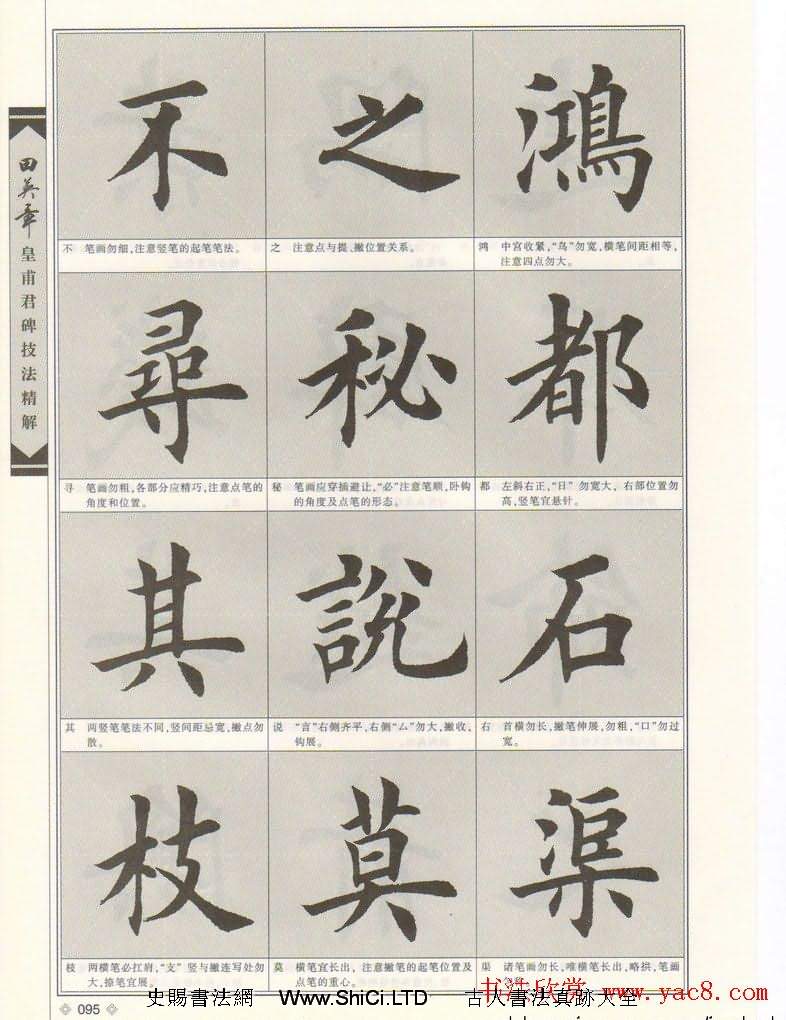 田英章
皇甫君碑技法精解
鴻
鸿 中宫收紧，“鸟”勿宽，横笔间距相等，
注意四点勿大。
都
都 左斜右正，“日”勿宽大，右部位置勿
高，竖笔宜悬针。
石
石 首横勿长，撇笔伸展，勿粗，“口”勿过
宽。
渠
渠 诸笔画勿长，唯横笔长出，略拱，笔画
之
之 注意点与提、撇位置关系。
秘
秘 笔画应穿插避让，“必”注意笔顺，卧钩
的角度及点笔的形态。
說
说 “言”右侧齐平，右侧“厶”勿大，撇收，
钩展。
莫
莫 横笔宜长出，注意撇笔的起笔位置及
点笔的重心。
不
不 笔画勿细，注意竖笔的起笔笔法。
尋
寻 笔画勿粗，各部分应精巧，注意点笔的
角度和位置。
其
其 两竖笔笔法不同，竖间距忌宽，撇点勿
散。
枝
枝 两横笔必扛肩，“支”竖与撇连写处勿
大，捺笔宜展。
095
史賜書法網 Www.ShiCi.LTD 古人書法真跡大全
书法欣赏 www.yac8.com